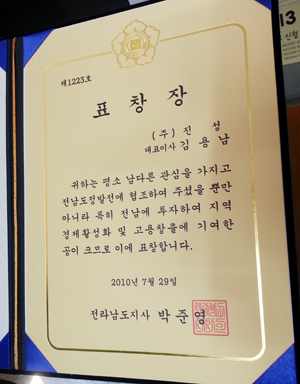 제1223호
표창장
(주) 진 성
대표이사 김 용 남
귀하는 평소 남다른 관심을 가지고
전남도정발전에 협조하여 주셨을 뿐만
아니라 특히 전남에 투자하여 지역
경제활성화 및 고용창출에 기여한
공이 크므로 이에 표창합니다.
2010년 7월 29일
전라남도지사 박 준 영
13